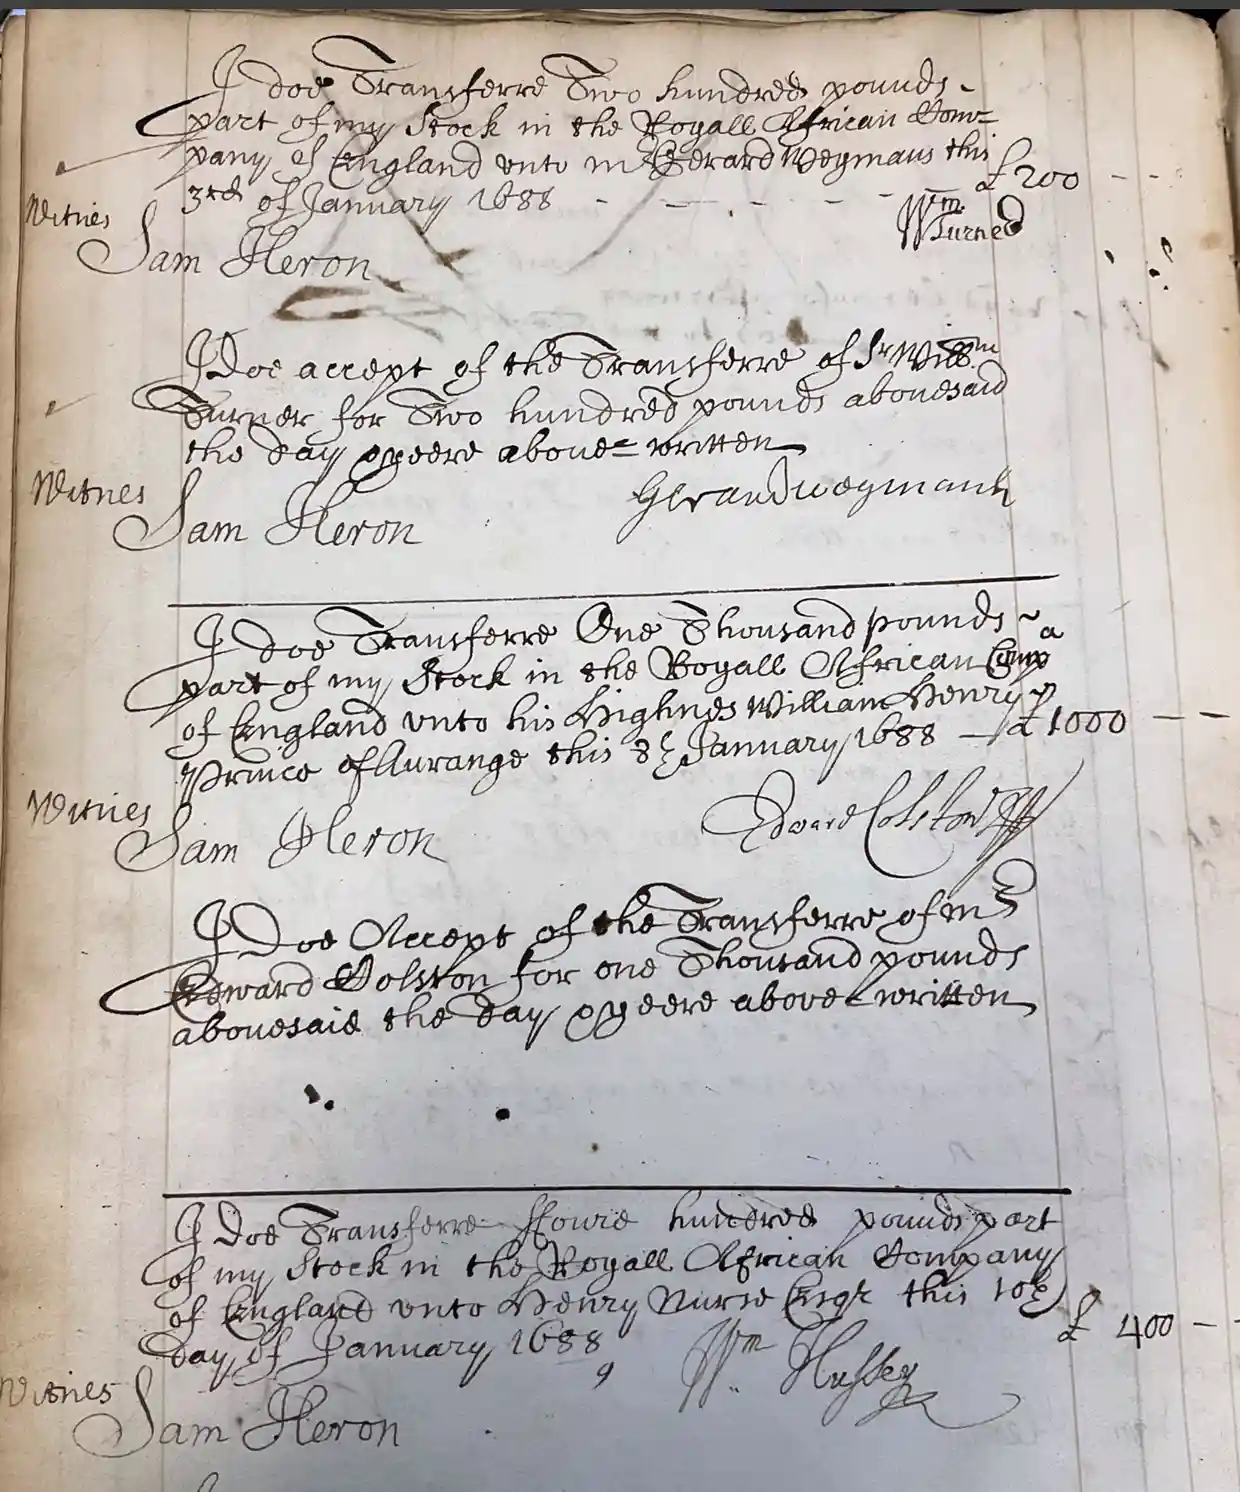 I doe Transferre Two hundred pounds
part of my Stock in the Royall African Com=
pany of England vnto mr Gerard Wegmans this
3rd of January 1688 - - - - - - £ 200 - -
Witnes Wm Turner
Sam Heron
I Doe accept of the Transferre of Sr Willm
Turner for Two hundred pounds abouesaid
the day & yeere aboue=written
Witnes Gerard wegmans
Sam Heron
I doe Transferre One Thousand pounds
part of my Stock in the Royall African Compa
of England vnto his Highnes William Henry
Prince of Aurange this 8th January 1688 — £ 1000 - -
Witnes Edward Colston
Sam Heron
I Doe Accept of the Transferre of mr
Edward Colston for one Thousand pounds
abouesaid the day & yeere above=written
I Doe Transferre ffoure hundred pounds part
of my Stock in the Royall African Company
of England vnto Henry Nurse Esqr this 10th
day of January 1688/9 £ 400 - -
Witnes Wm Hussey
Sam Heron